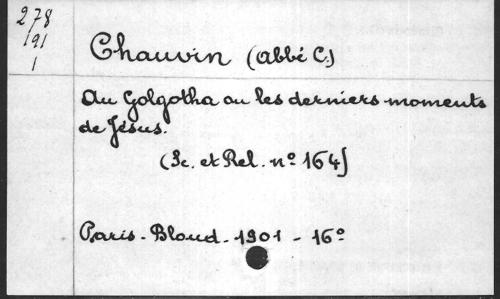 278
191
1
Chauvin (abbé C.)
Au Golgotha ou les derniers moments
de Jésus.
(Sc. et Rel. nº 164]
Paris - Bloud - 1901 - 16º